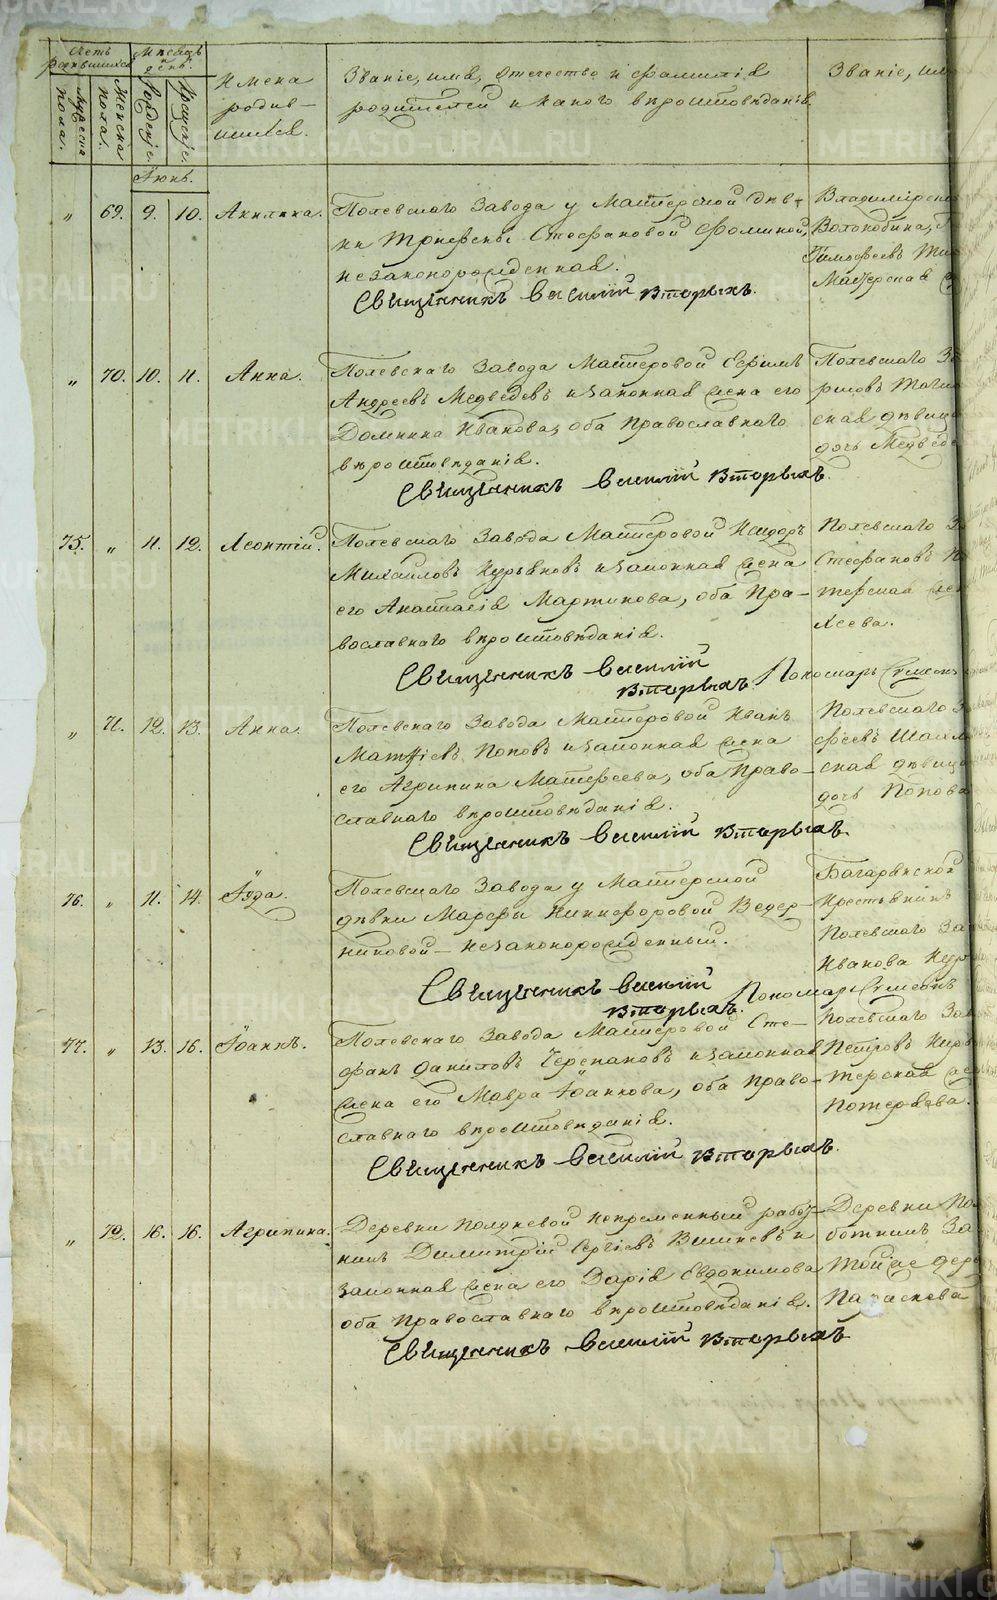 Счетъ родившихся
Мѣсяцъ и день.
Мужеска пола.
Женска пола.
Рожденіе.
Крещеніе.
Имена родив-
шихся.
Званіе, имя, отечество и фамилія
родителей и какого вѣроисповѣданія
Званіе, им
Іюнь.
„ 69. 9. 10. Акилина.
Полевскаго Завода у Мастерской дѣв-
ки Трифены Стефановой Фоминой,
незаконорожденная.
Священникъ Василій Вторыхъ.
Владимірск
Волокобина,
Тимофеевъ
Мастерская
„ 70. 10. 11. Анна.
Полевскаго Завода Мастеровой Ефимъ
Андреевъ Медведевъ и законная жена его
Домника Иванова, оба Православнаго
вѣроисповѣданія.
Священникъ Василій Вторыхъ.
Полевскаго За
ская дѣвица
дочь Медведе
75. „ 11. 12. Леонтій.
Полевскаго Завода Мастеровой Исидоръ
Михайловъ Курьяновъ и законная жена
его Анастасія Мартинова, оба Пра-
вославнаго вѣроисповѣданія.
Священникъ Василій
Вторыхъ. Пономарь Симеонъ
Полевскаго З
Стефановъ
терская жен
ѣева.
„ 71. 12. 13. Анна.
Полевскаго Завода Мастеровой Иванъ
Матѳіевъ Поповъ и законная жена
его Агрипина Матфеева, оба Право-
славнаго вѣроисповѣданія.
Священникъ Василій Вторыхъ.
Полевскаго З
феевъ
ская дѣвица
дочь Попова
76. „ 11. 14. Іуда.
Полевскаго Завода у Мастерской
дѣвки Марфы Никифоровой Ведер-
никовой – незаконорожденный.
Священникъ Василій
Вторыхъ. Пономарь Симеонъ
Багарякской
Крестьянинъ
Полевскаго За
Иванова
77. „ 13. 16. Іоаннъ.
Полевскаго Завода Мастеровой Сте-
фанъ Даниловъ Черепановъ и законная
жена его Мавра Іоаннова, оба Право-
славнаго вѣроисповѣданія.
Священникъ Василій Вторыхъ.
Полевскаго Зав
Петровъ Кирь
терская же
Потеряева.
„ 72. 16. 16. Агрипина.
Деревни Полдневой непременный работ-
никъ Димитрій Сергіевъ и
законная жена его Дарія Евдокимова
оба Православнаго вѣроисповѣданія.
Священникъ Василій Вторыхъ
Деревни По
ботникъ За
Тойже дере
Параскева
METRIKI.GASO-URAL.RU